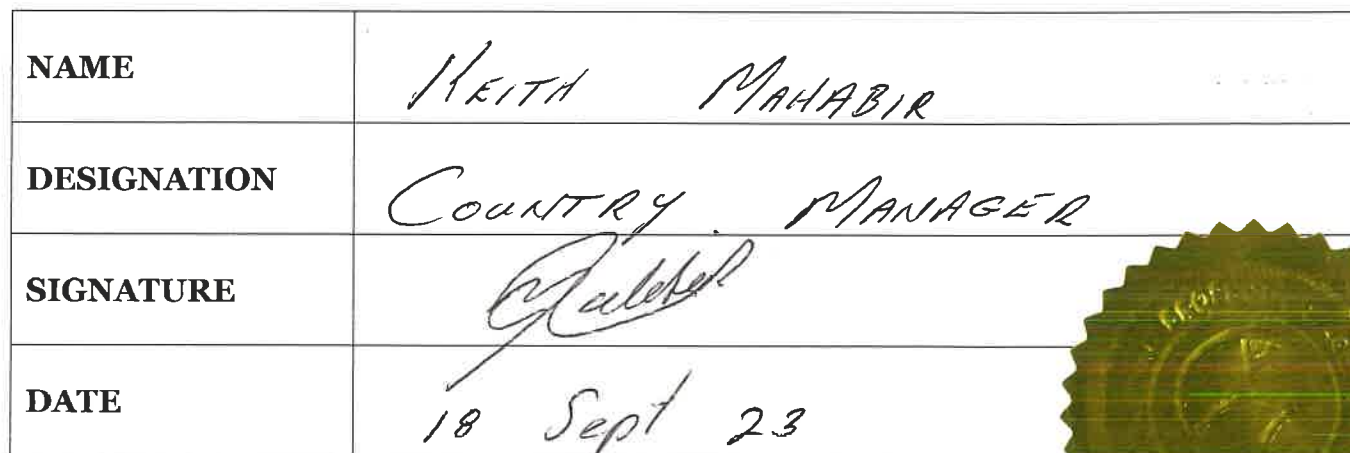 NAME KEITH MAHABIR
DESIGNATION COUNTRY MANAGER
SIGNATURE
DATE 18 Sept 23